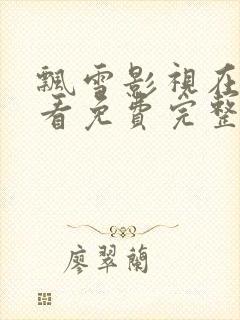 飄雪影視在
看免費完整
廖翠蘭